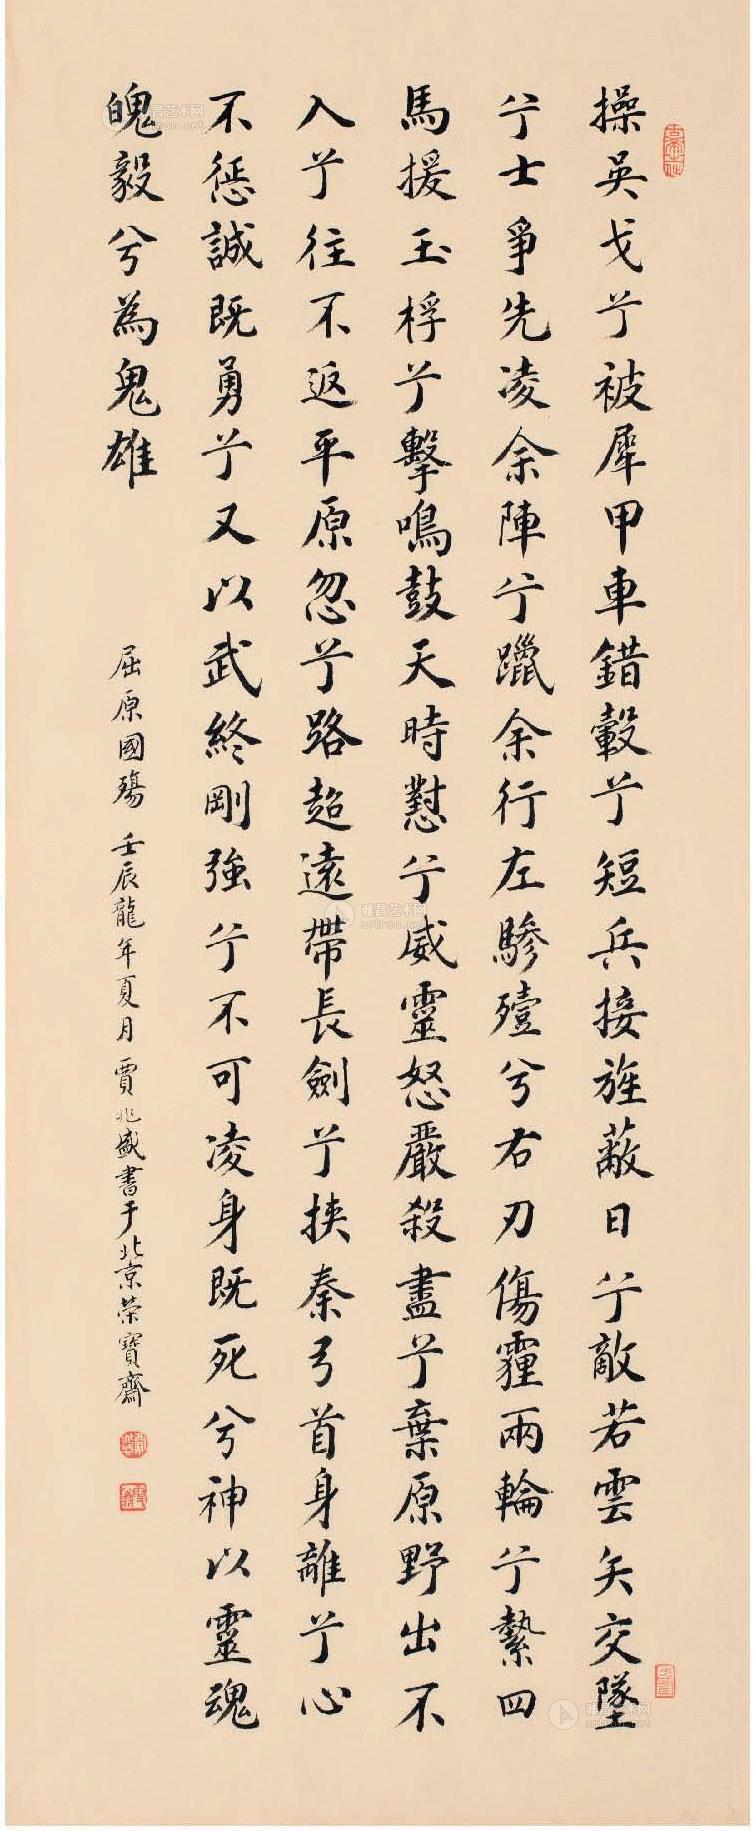 操吳戈兮被犀甲車錯轂兮短兵接旌蔽日兮敵若雲矢交墜
兮士爭先凌余陣兮躐余行左驂殪兮右刃傷霾兩輪兮縶四
馬援玉桴兮擊鳴鼓天時懟兮威靈怒嚴殺盡兮棄原野出不
入兮往不返平原忽兮路超遠帶長劍兮挾秦弓首身離兮心
不懲誠既勇兮又以武終剛強兮不可凌身既死兮神以靈魂
魄毅兮為鬼雄
屈原國殤 壬辰龍年夏月 賈兆盛書于北京榮寶齋
雅昌艺术网
artron.net
雅昌艺术网
artron.net
雅昌艺术网
artron.net